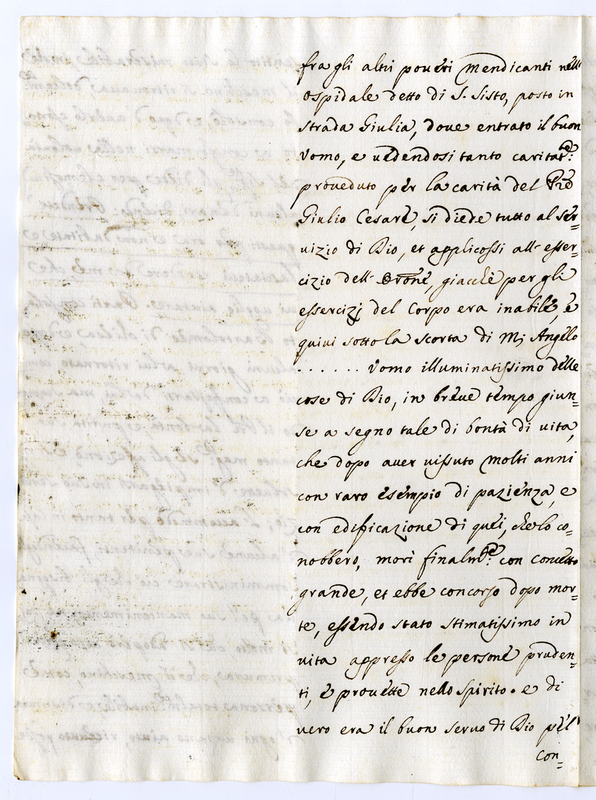 fra gli altri poueri Mendicanti nell
Ospidale detto di S. Sisto, posto in
strada Giulia, doue entrato il buon
Vomo, e uedendosi tanto caritat.e:
proueduto per la carità del Pre
Giulio Cesare, si diede tutto al ser=
uizio di Dio, et applicossi all' eser=
cizio dell' Orõne, giacchè per gli
essercizj del Corpo era inabile, e
quiui sotto la scorta di M: Angelo
. . . . . . . Vomo illuminatissimo delle
cose di Dio, in breue tempo giun=
se a segno tale di bontà di uita,
che dopo auer uissuto molti anni
con raro esempio di pazienza, e
con edificazione di quei, che lo co=
nobbero, morì finalm.e: con concetto
grande, et ebbe concorso dopo mor=
te, essendo stato stimatissimo in
uita appresso le persone pruden=
ti, e prouette nello Spirito. e di
uero era il buon seruo di Dio pel
con=